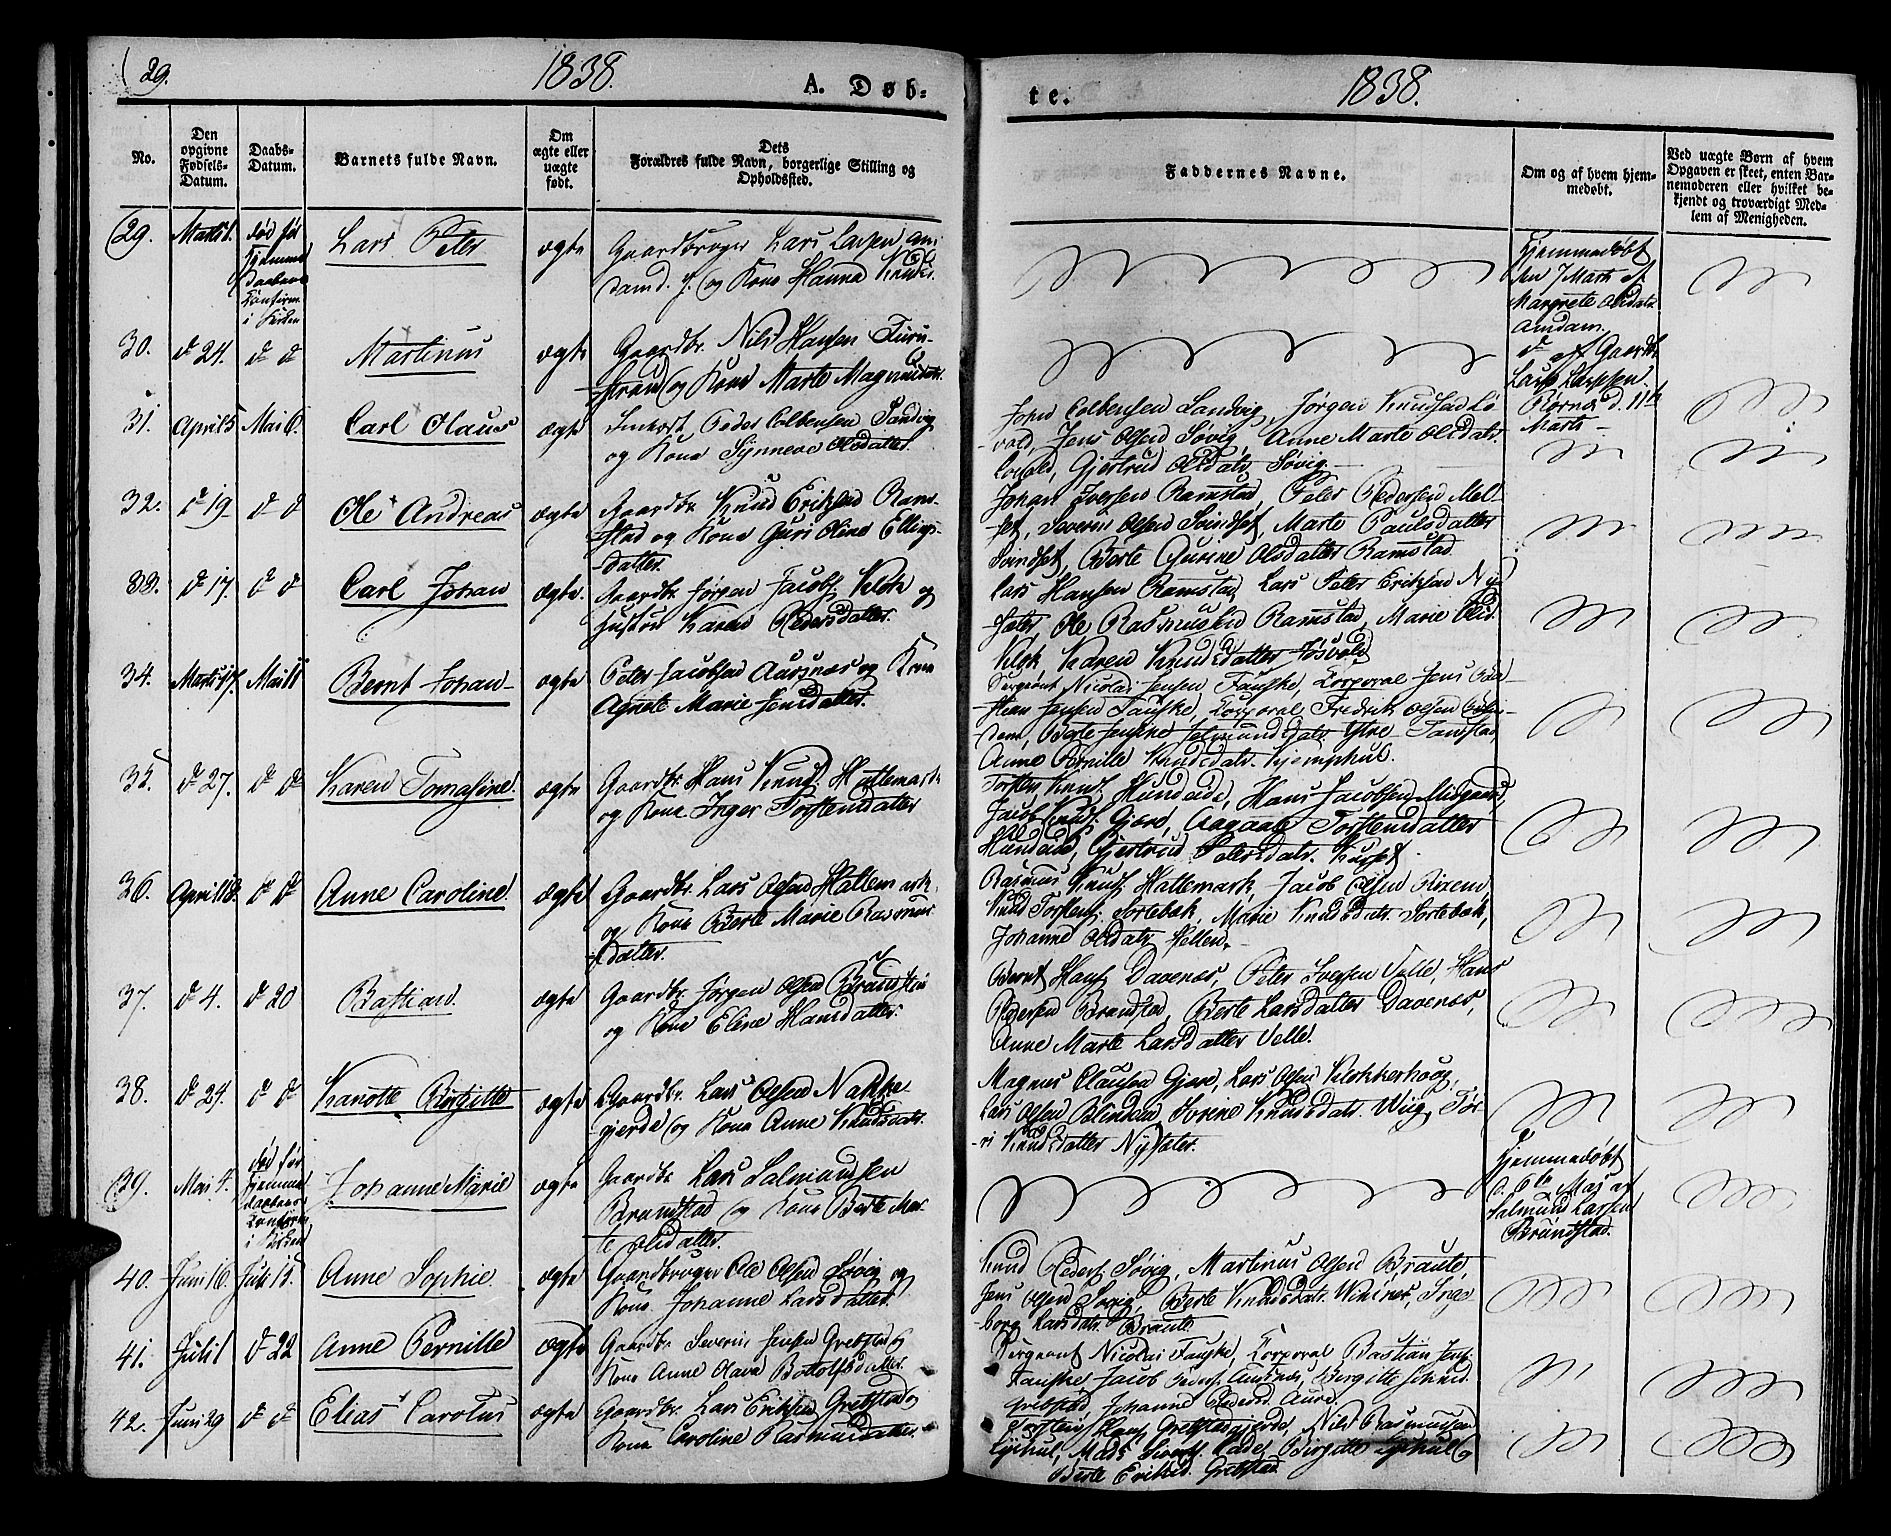 29.
1838.
A. Døb-
te.
1838.
No.
Den
opgivne
Fødsels-
Datum.
Daabs-
Datum.
Barnets fulde Navn.
Om
ægte eller
uægte
født.
Dets
Forældres fulde Navn, borgerlige Stilling og
Opholdssted.
Faddernes Navne.
Om og af hvem hjem-
medøbt.
Ved uægte Børn af hvem
Opgaven er skeet, enten Bar-
nemoderen eller hvilket be-
kjendt og troværdigt Med-
lem af Menigheden.
29.
Marts 1.
død før
Hjemme
Daabens
Confirm
i Kirken
Lars Peter
ægte
Gaardbruger Lars Larsen Am-
dam og Kone Hanna Knuds
Hjemmedøbt
den 7 Marts af
Margrete Olsdatr
Amdam
30.
d 24.
d d
Martinus
ægte
Gaardbr. Nils Hansen Furu-
strand og Kone Marte Magnusdatr.
d af Gaardbr
Lars Larssen
d. 11te
Marts
31.
April 5
Mai 6.
Carl Olaus
ægte
Peder Colbensen Sandvig
og Kone Synneve Olsdatter
John Colbensen Sandvig, Jørgen Knudsen Lø-
vold, Jens Olsen Søvig, Anne Marte Olsdatr
Løvold, Gjertrud Olsdatr Søvig.
32.
d 19
d d
Ole Andreas
ægte
Gaardbr Knud Eriksen Ram-
stad og Kone Guri Oline Ellings-
datter.
Johan Iversen Ramstad, Peter Pedersen Mel-
set, Severin Olsen Svindset, Marte Paulsdatter
Svindset, Berte Gurine Olsdatter Ramstad.
33.
d 17.
d d
Carl Johan
ægte.
Gaardbr Jørgen Jacobs Klok og
Hustru Karen Pedersdatter.
Lars Hansen Ramstad, Lars Peter Eriksen Ny-
sæter, Ole Rasmussen Ramstad, Marie Olsd.
Klok, Karen Knudsdatter Løsvold
34.
Marts 17.
Mai 11
Bernt Johan
ægte
Peter Jacobsen Aarsnæs og Kone
Agnete Marie Jensdatter.
Sergeant Nicolai Jensen Fauske, Corporal Jens
Jensen Fauske, Corporal Fredrik Olsen
Berte Jensine Salmundsdatr Ytre
Anne Pernille Knudsdatr. Kjemphul.
35.
d 27.
d d
Karen Tomasine.
ægte
Gaardbr. Hans Knuds. Hattemark
og Kone Inger Torstensdatter
Torsten Knuds. Hundeide, Hans Jacobsen Midgaard,
Jacob Knuds. Gjære, Aagaate Torstensdatter
Hundeide, Gjertrud Petersdatr. Kurset.
36.
April 18.
d d
Anne Caroline.
ægte
Gaardbr. Lars Olsen Hattemark
og Kone Berte Marie Rasmus-
datter.
Rasmus Knuds Hattemark, Jacob Olsen
Knud Torstens. Sortebæk, Marie Knudsdatr. Sortebæk,
Johanne Olsdatr Hellen.
37.
d 4.
d 20
Bastian.
ægte
Gaardbr Jørgen Olsen Brandstad
og Kone Eline Hansdatter.
Bernt Hans Davenæs, Peter Iversen Velle, Hans
Pedersen Brandstad, Berte Larsdatter Davenæs,
Anne Marte Larsdatter Velle.
38.
d 24.
d d
Kanotte Birgitte
ægte
Gaardbr. Lars Olsen Nakke-
gjerde og Kone Anne Knudsdatr.
Magnus Clausen Gjære, Lars Olsen Klokkerhoug,
Lars Olsen Blinden, Sirine Knudsdatr. Wiig, Tør-
ri Knudsdatter Nysæter.
39.
Mai 4.
død før
Hjemme
daabens
Confirm
i Kirken
Johanne Marie
ægte
Gaardbr Lars Salmundsen
Brandstad og Kone Berte Mar-
te Olsdatter.
Hjemmedøbt
d. 6te Mai af
Salmund Larsen
Brandstad.
40.
Juni 16.
Juli 15.
Anne Sophie
ægte
Gaardbruger Ole Olsen Søvig og
Kone Johanne Larsdatter.
Knud Peders Søvig, Martinus Olsen Braute
Jens Olsen Søvig, Berte Knudsdatr. Inge-
borg Larsdatr. Braute.
41.
Juli 1
d 22
Anne Pernille
ægte
Gaardbr. Severin Jensen Grebstad og
Kone Anne Olava Bottolfsdatter.
Sergeant Nicolai Fauske, Corporal Bastian Jens.
Fauske Jacob Peders. Aursnes, Birgitte
Grebstad Johanne Pedersd. Aure.
42.
Juni 29
d d
Elias Carolus
ægte
Gaardbr. Lars Eriksen Grebstad og
Kone Caroline Rasmusdatter.
Torstein Hans Grebstadgjerde, Nils Rasmussen
Lyshul, Mads Birgitte Lyshul og
Berte Eriksd. Grebstad.